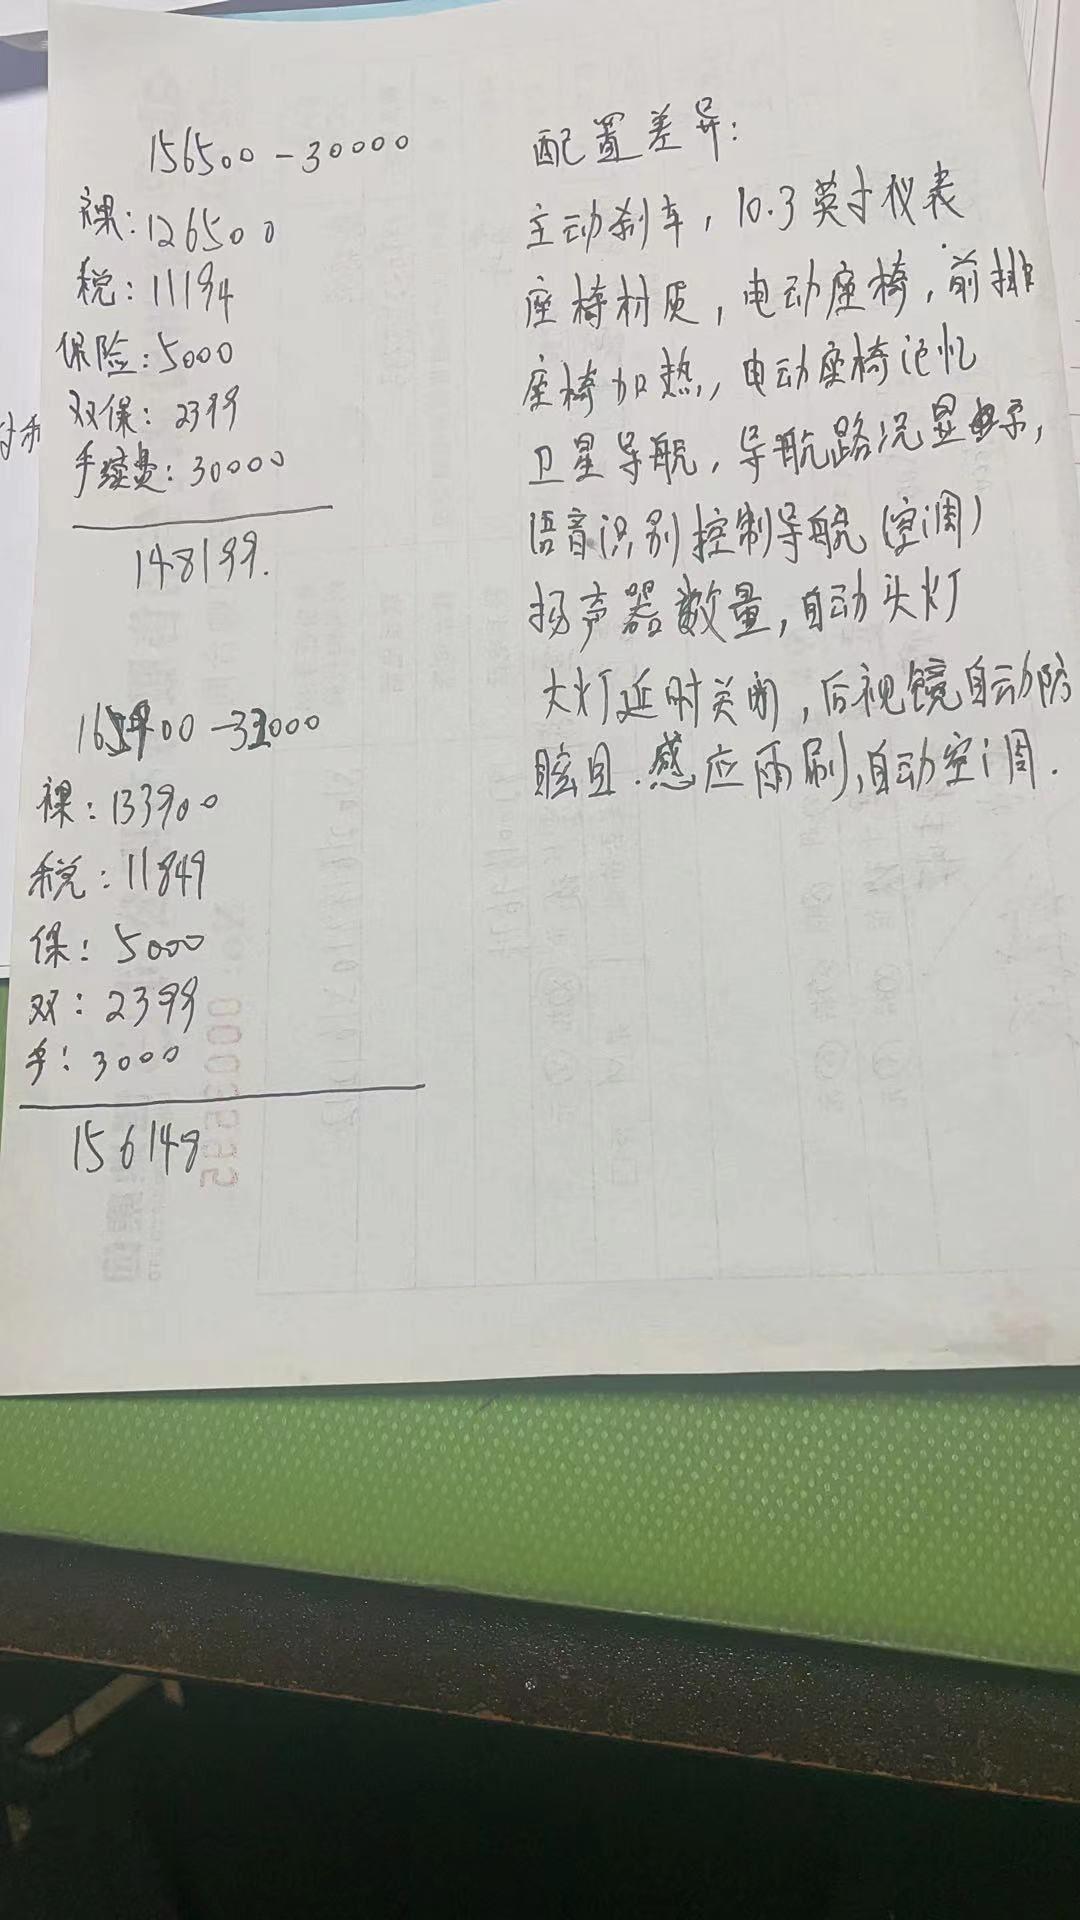 156500-30000
裸:126500
税:11194
保险:5000
双保:2399
手续费:30000
148199.
165900-32000
裸:133900
税:11849
保:5000
双:2399
手:3000
156148
配置差异:
主动刹车,10.3英寸仪表
座椅材质,电动座椅,前排
座椅加热,电动座椅记忆
卫星导航,导航路况显示,
语音识别控制导航(空调)
扬声器数量,自动头灯
大灯延时关闭,后视镜自动防
眩目.感应雨刷,自动空调.
0003595